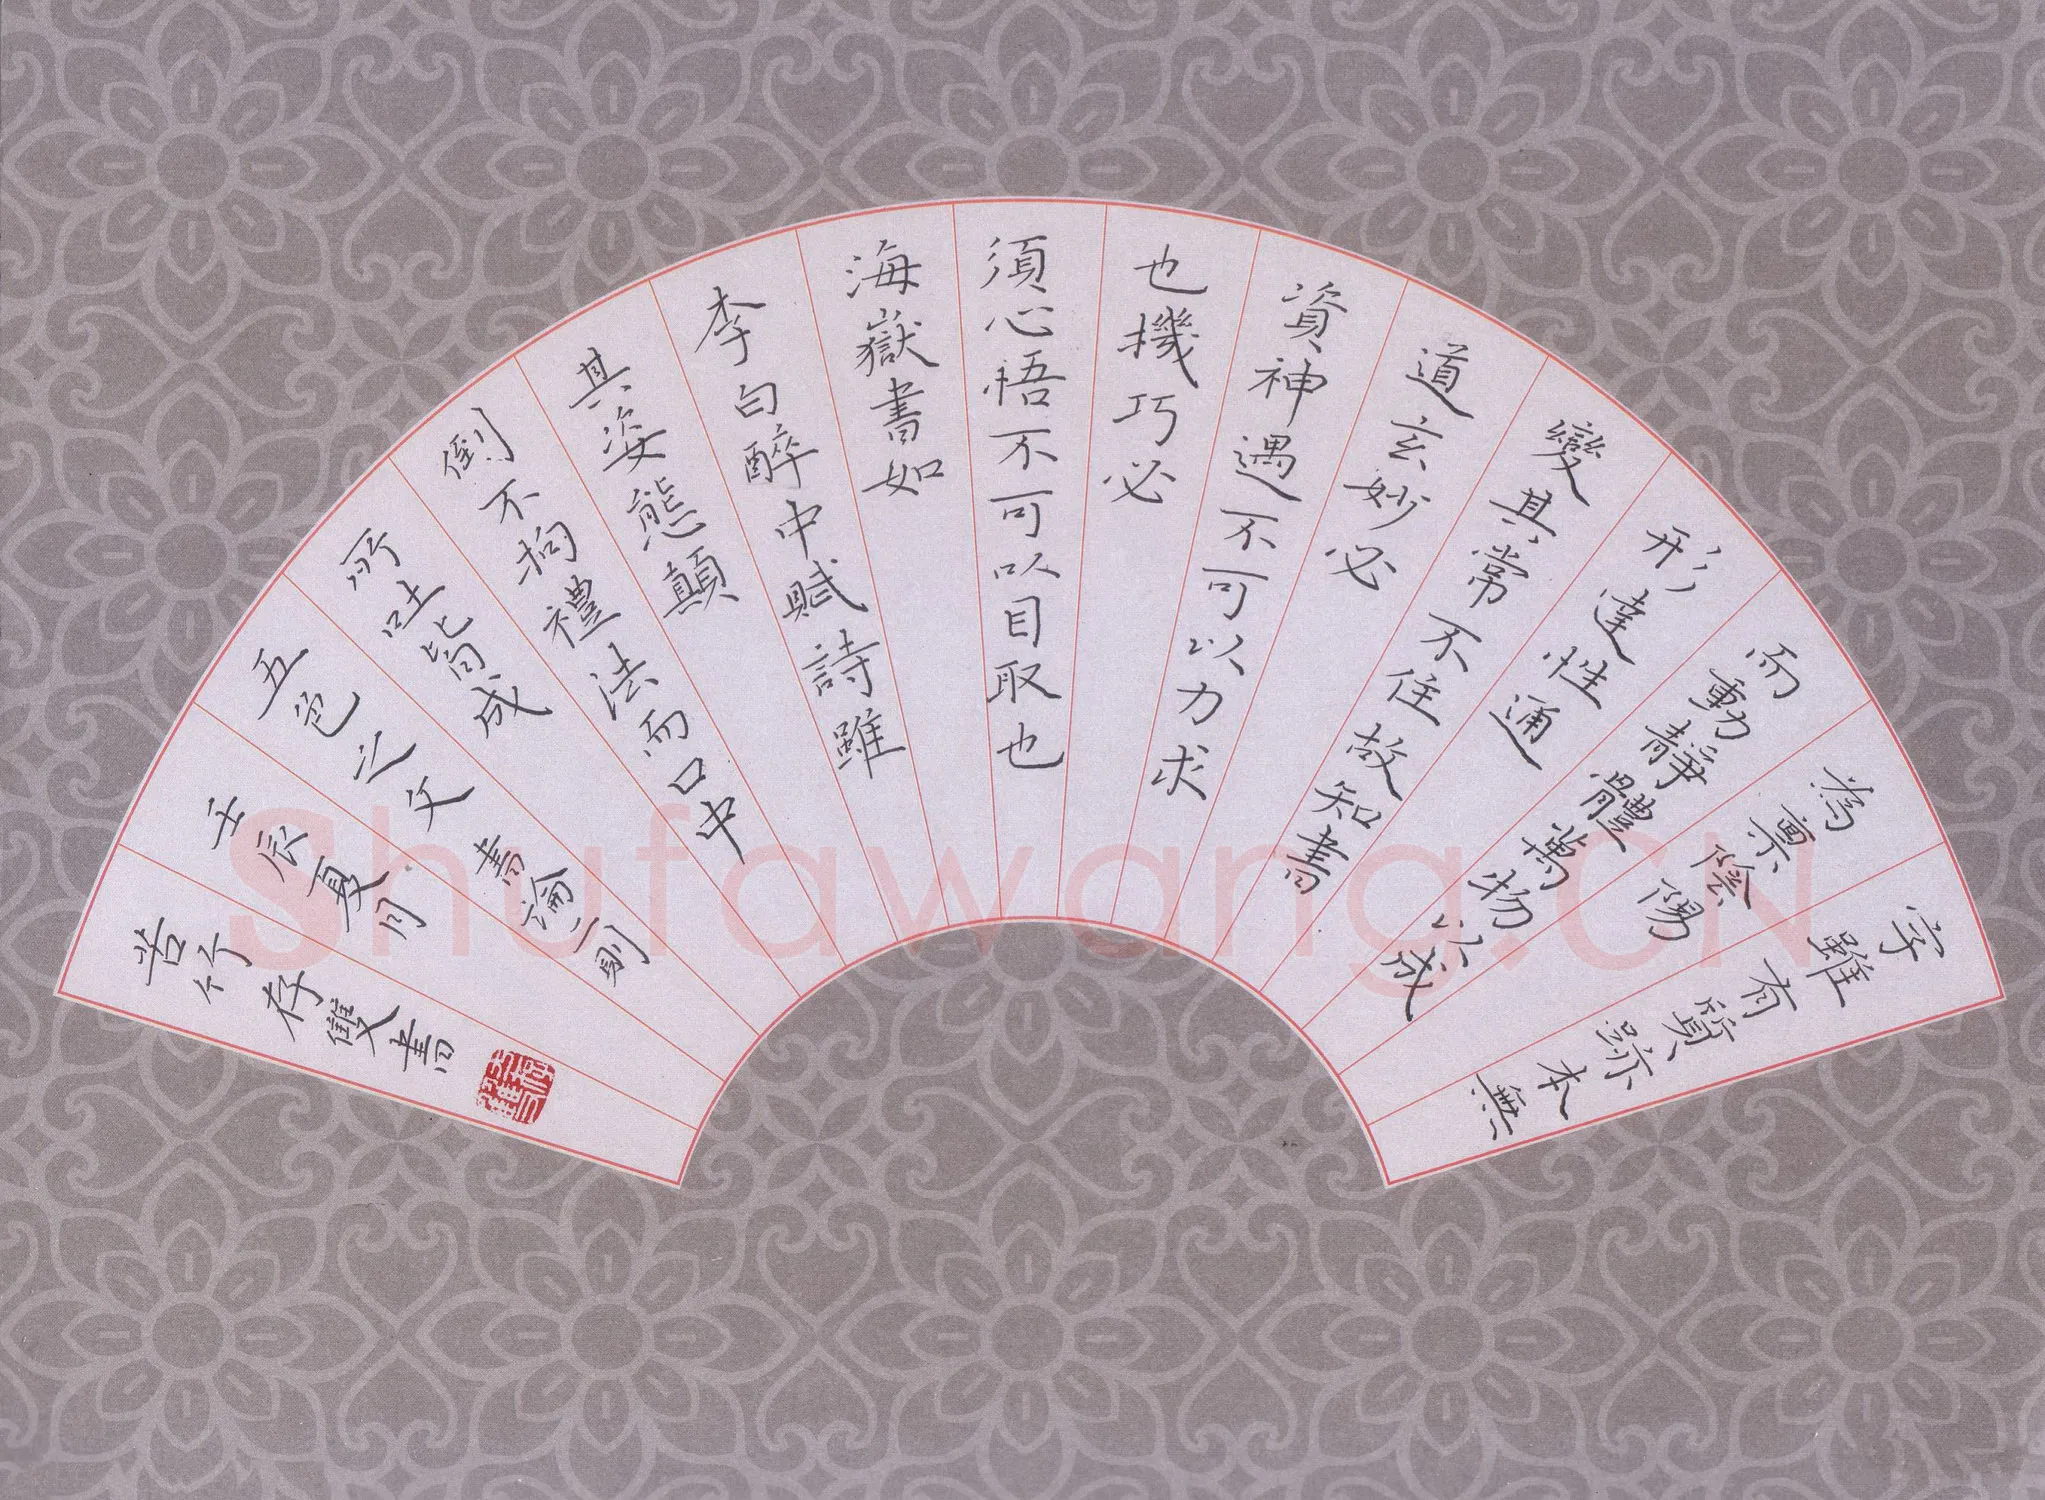 字雖有質跡本無
為稟陰陽
而動靜體萬物以成
形達性通
變其常不住故知書
道玄妙必
資神遇不可以力求
也機巧必
須心悟不可以目取也
海嶽書如
李白醉中賦詩雖
其姿態顛
倒不拘禮法而口中
所吐皆成
五色之文書論一則
壬辰夏月
苦竹存雙書
Shufawang.CN